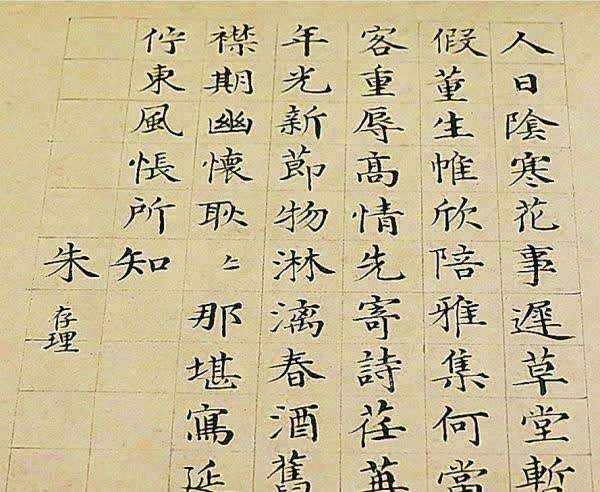 人日陰寒花事遲草堂暫
假董生帷欣陪雅集何當
客重辱髙情先寄詩荏苒
年光新節物淋漓春酒舊
襟期幽懷耿〻那堪寫延
佇東風悵所知
朱存理